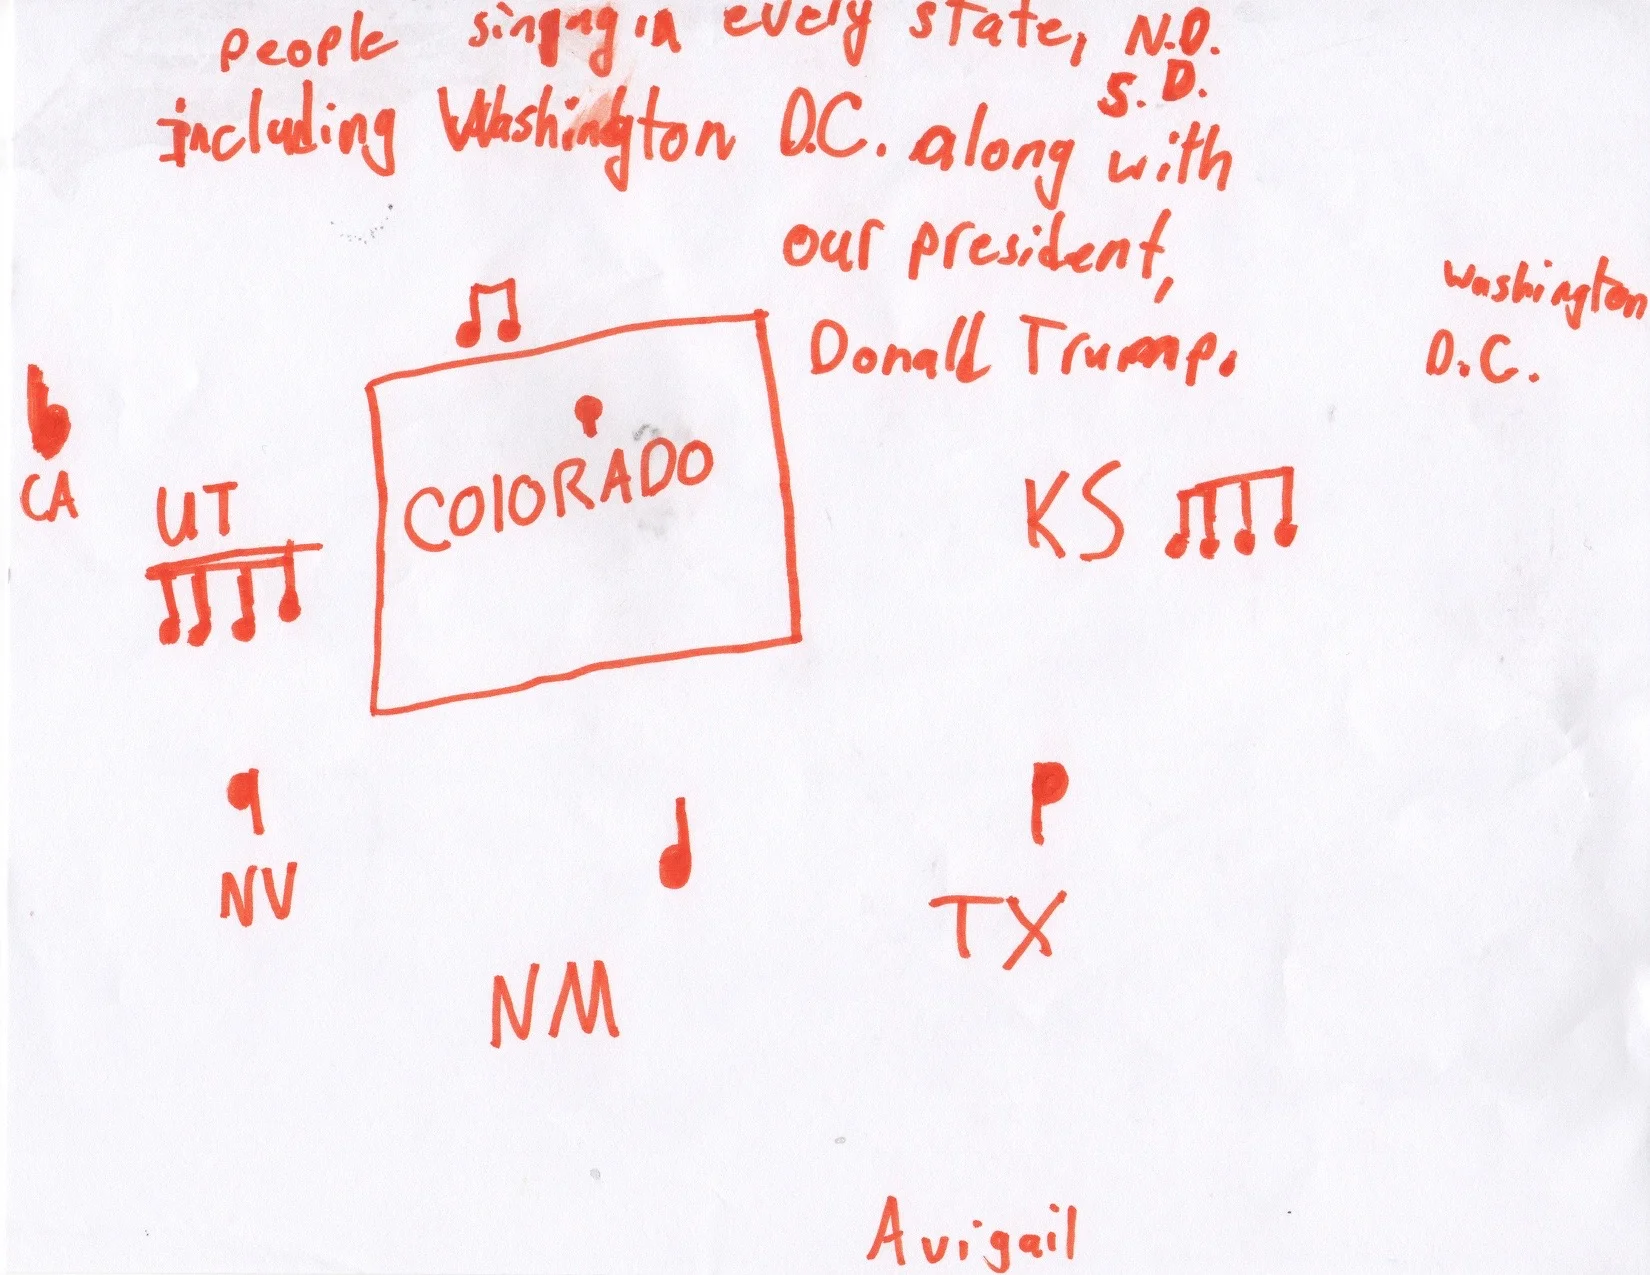 people singing in every state, N.D.
S.D.
including Washington D.C. along with
our president,
Donald Trump.
Washington
D.C.
CA
UT
COlORADO
KS
NV
TX
NM
Avigail